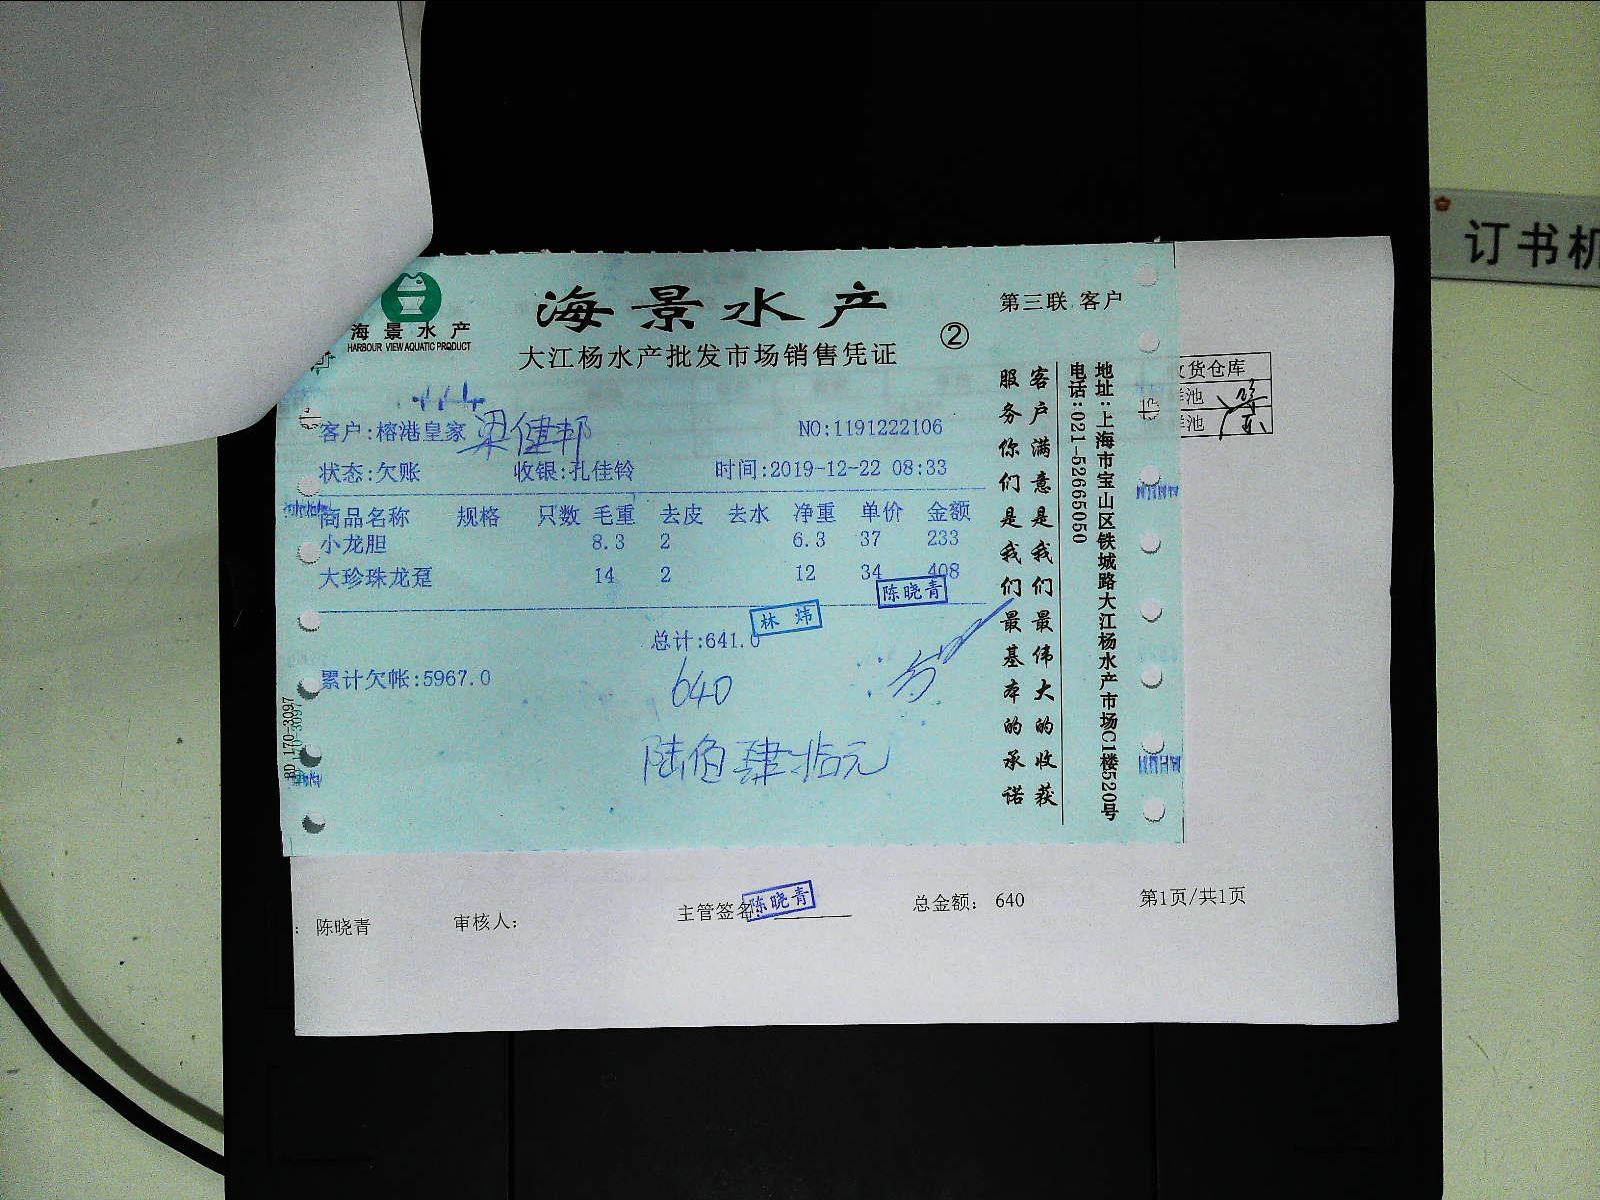 订书机
海景水产
HARBOUR VIEW AQUATIC PRODUCT
海景水产
大江杨水产批发市场销售凭证
②
第三联 客户
客户:榕港皇家 梁健邦
NO:1191222106
状态:欠账 收银:孔佳铃 时间:2019-12-22 08:33
商品名称 规格 只数 毛重 去皮 去水 净重 单价 金额
小龙胆 8.3 2 6.3 37 233
大珍珠龙趸 14 2 12 34 408
陈晓青
林炜
总计:641.0
累计欠帐:5967.0
640
陆佰肆拾元
客户满意是我们最伟大的收获
服务你们是我们最基本的承诺
地址:上海市宝山区铁城路大江杨水产市场C1楼520号
电话:021-52665050
BD 170-3097
货仓库
池
池
: 陈晓青 审核人: 主管签名: 总金额: 640 第1页/共1页
陈晓青